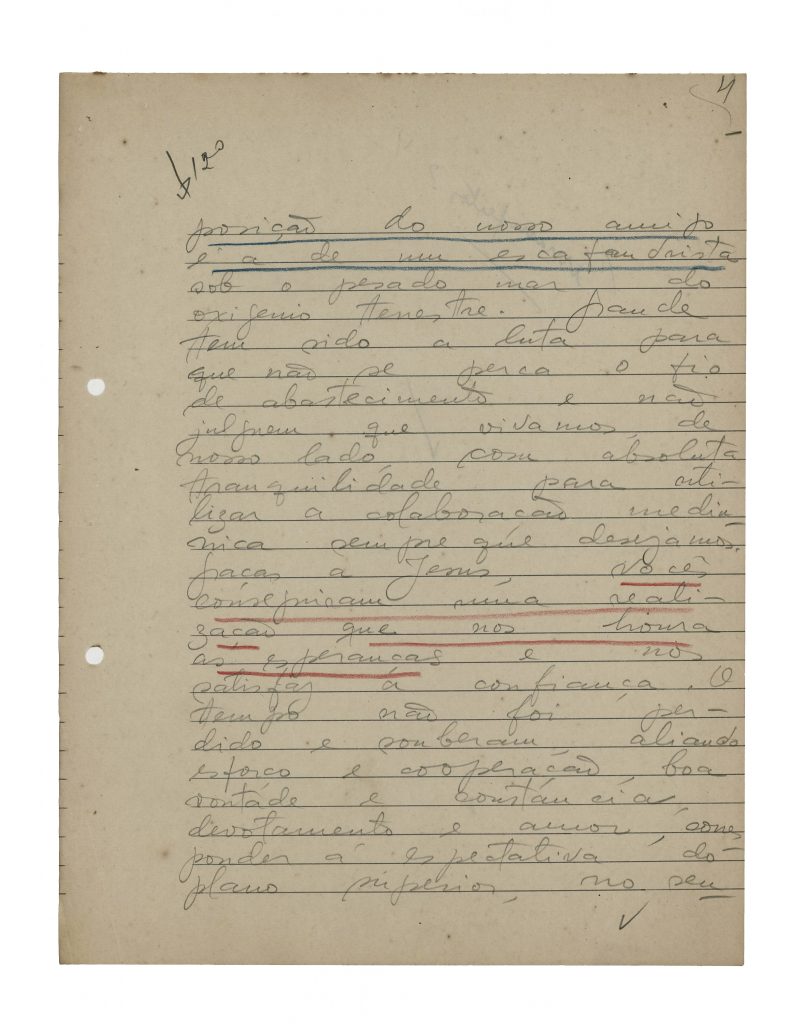 4
120
posição do nosso amigo
é a de um escafandrista
sob o pesado mar do
oxigenio terrestre. Grande
tem sido a luta para
que não se perca o fio
de abastecimento e não
julguem que vivamos, de
nosso lado, com absoluta
tranquilidade para uti-
lizar a colaboração mediú-
nica sempre que desejamos.
Graças a Jesus, vocês
conseguiram uma reali-
zação que nos honra
as esperanças e nos
satisfaz á confiança. O
tempo não foi per-
dido e souberam, aliando
esforço e cooperação, boa
vontade e constáncia,
devotamento e amor, corres
ponder á espectativa do
plano superior, no seu